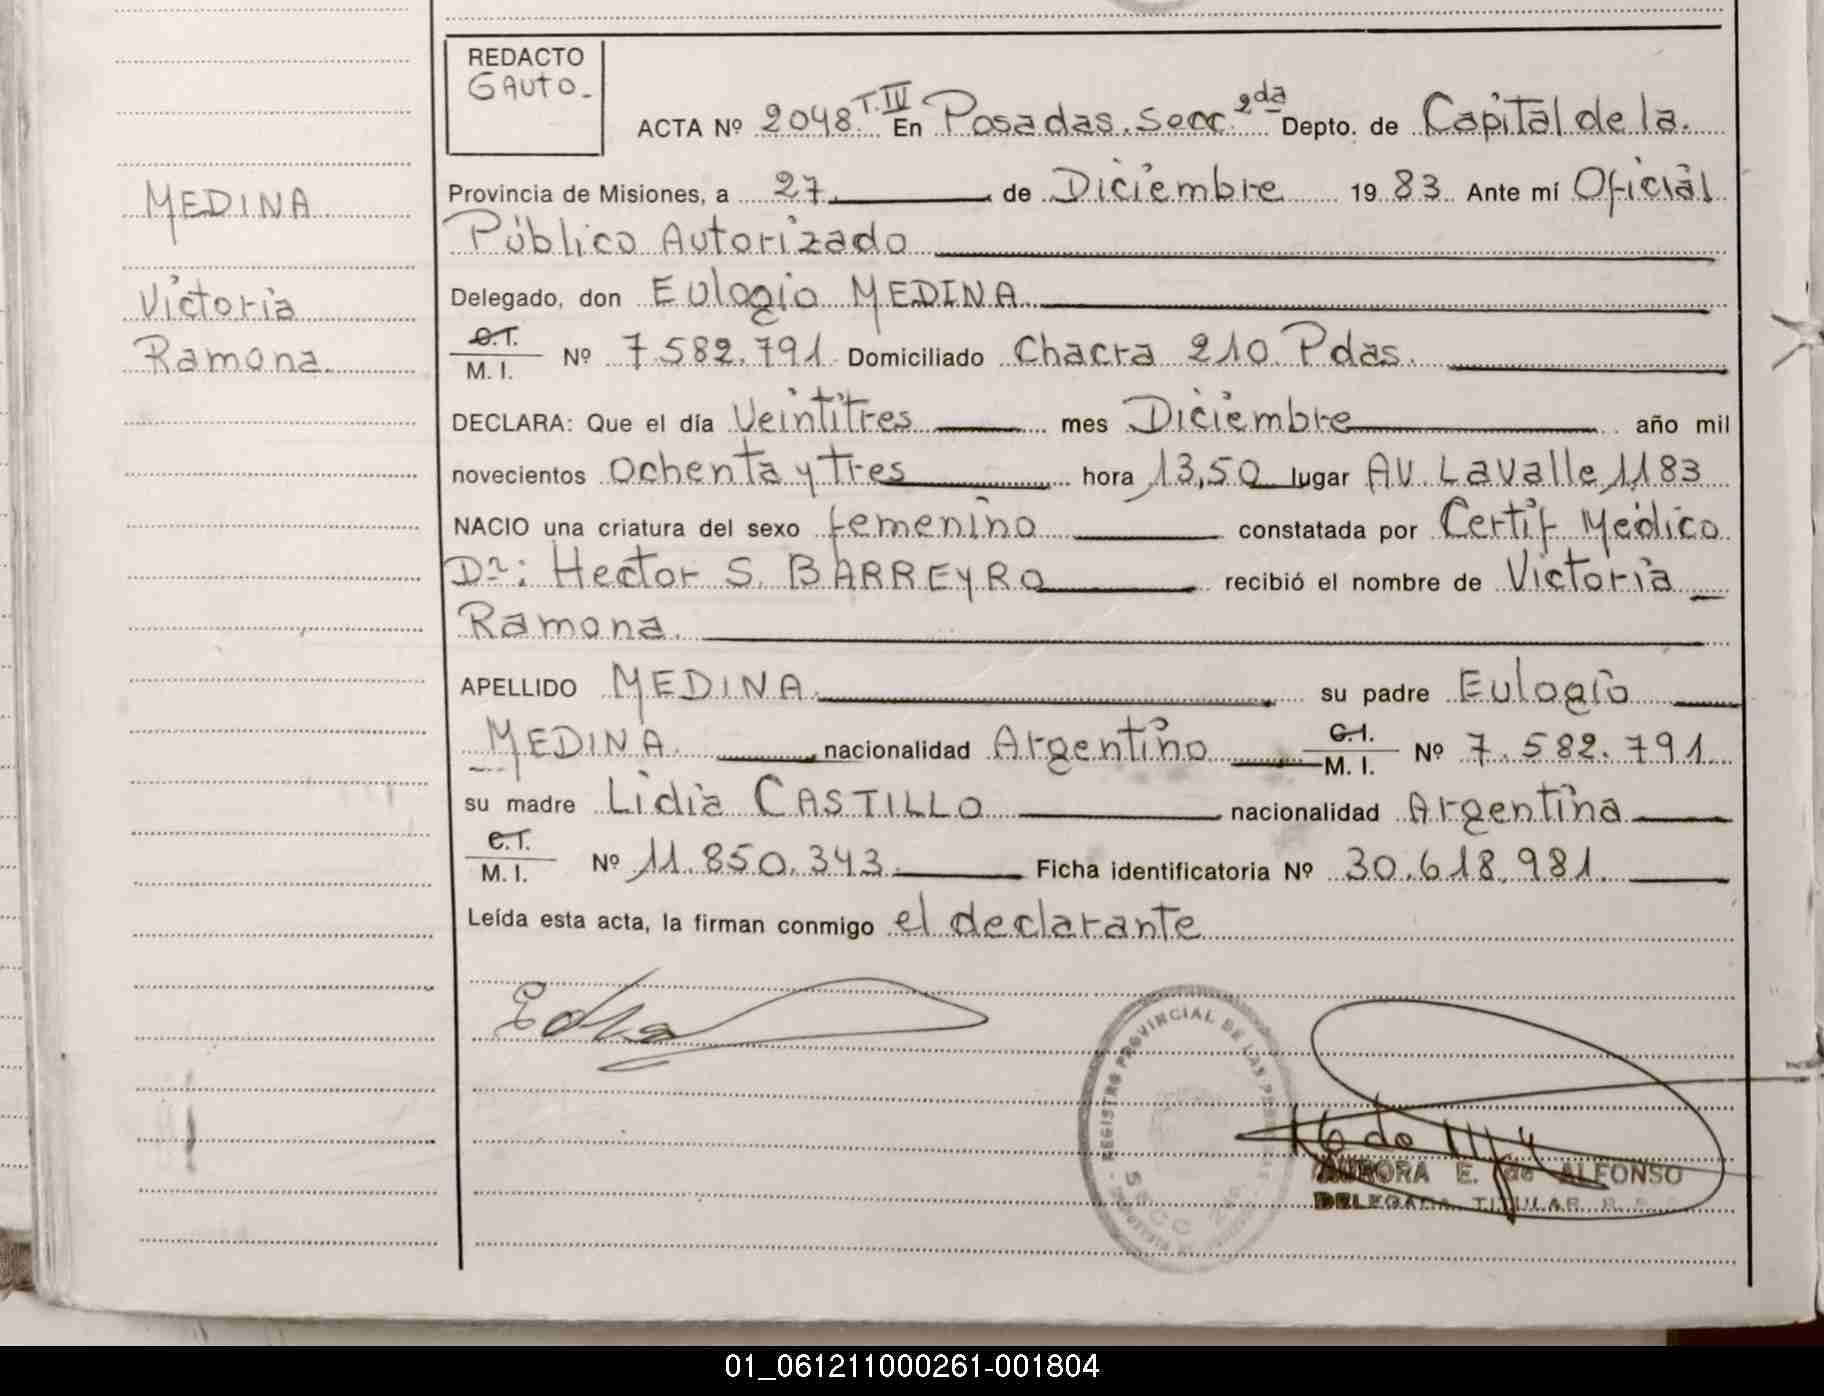 REDACTO
GAUTO.-
ACTA Nº 2048 T.IV En Posadas. Secc. 2da Depto. de Capital de la.
MEDINA
Provincia de Misiones, a 27 de Diciembre 1983. Ante mí Oficial
Público Autorizado
Victoria
Delegado, don Eulogio MEDINA
Ramona.
C.I.
M. I. Nº 7.582.791 Domiciliado Chacra 210. Pdas.
DECLARA: Que el día Veintitres mes Diciembre año mil
novecientos Ochenta y tres hora 13,50 lugar AV. Lavalle 1183
NACIO una criatura del sexo femenino constatada por Certif Medico
Dr: Hector S. BARREYRO recibió el nombre de Victoria
Ramona.
APELLIDO MEDINA su padre Eulogio
MEDINA. nacionalidad Argentino C.I. M. I. Nº 7.582.791.
su madre Lidia CASTILLO nacionalidad Argentina
C.I.
M. I. Nº 11.850.343. Ficha identificatoria Nº 30.618.981.
Leída esta acta, la firman conmigo el declarante
REGISTRO PROVINCIAL DE LAS PERSONAS
SECC 2da
AURORA E. de ALFONSO
DELEGADA TITULAR
01_061211000261-001804